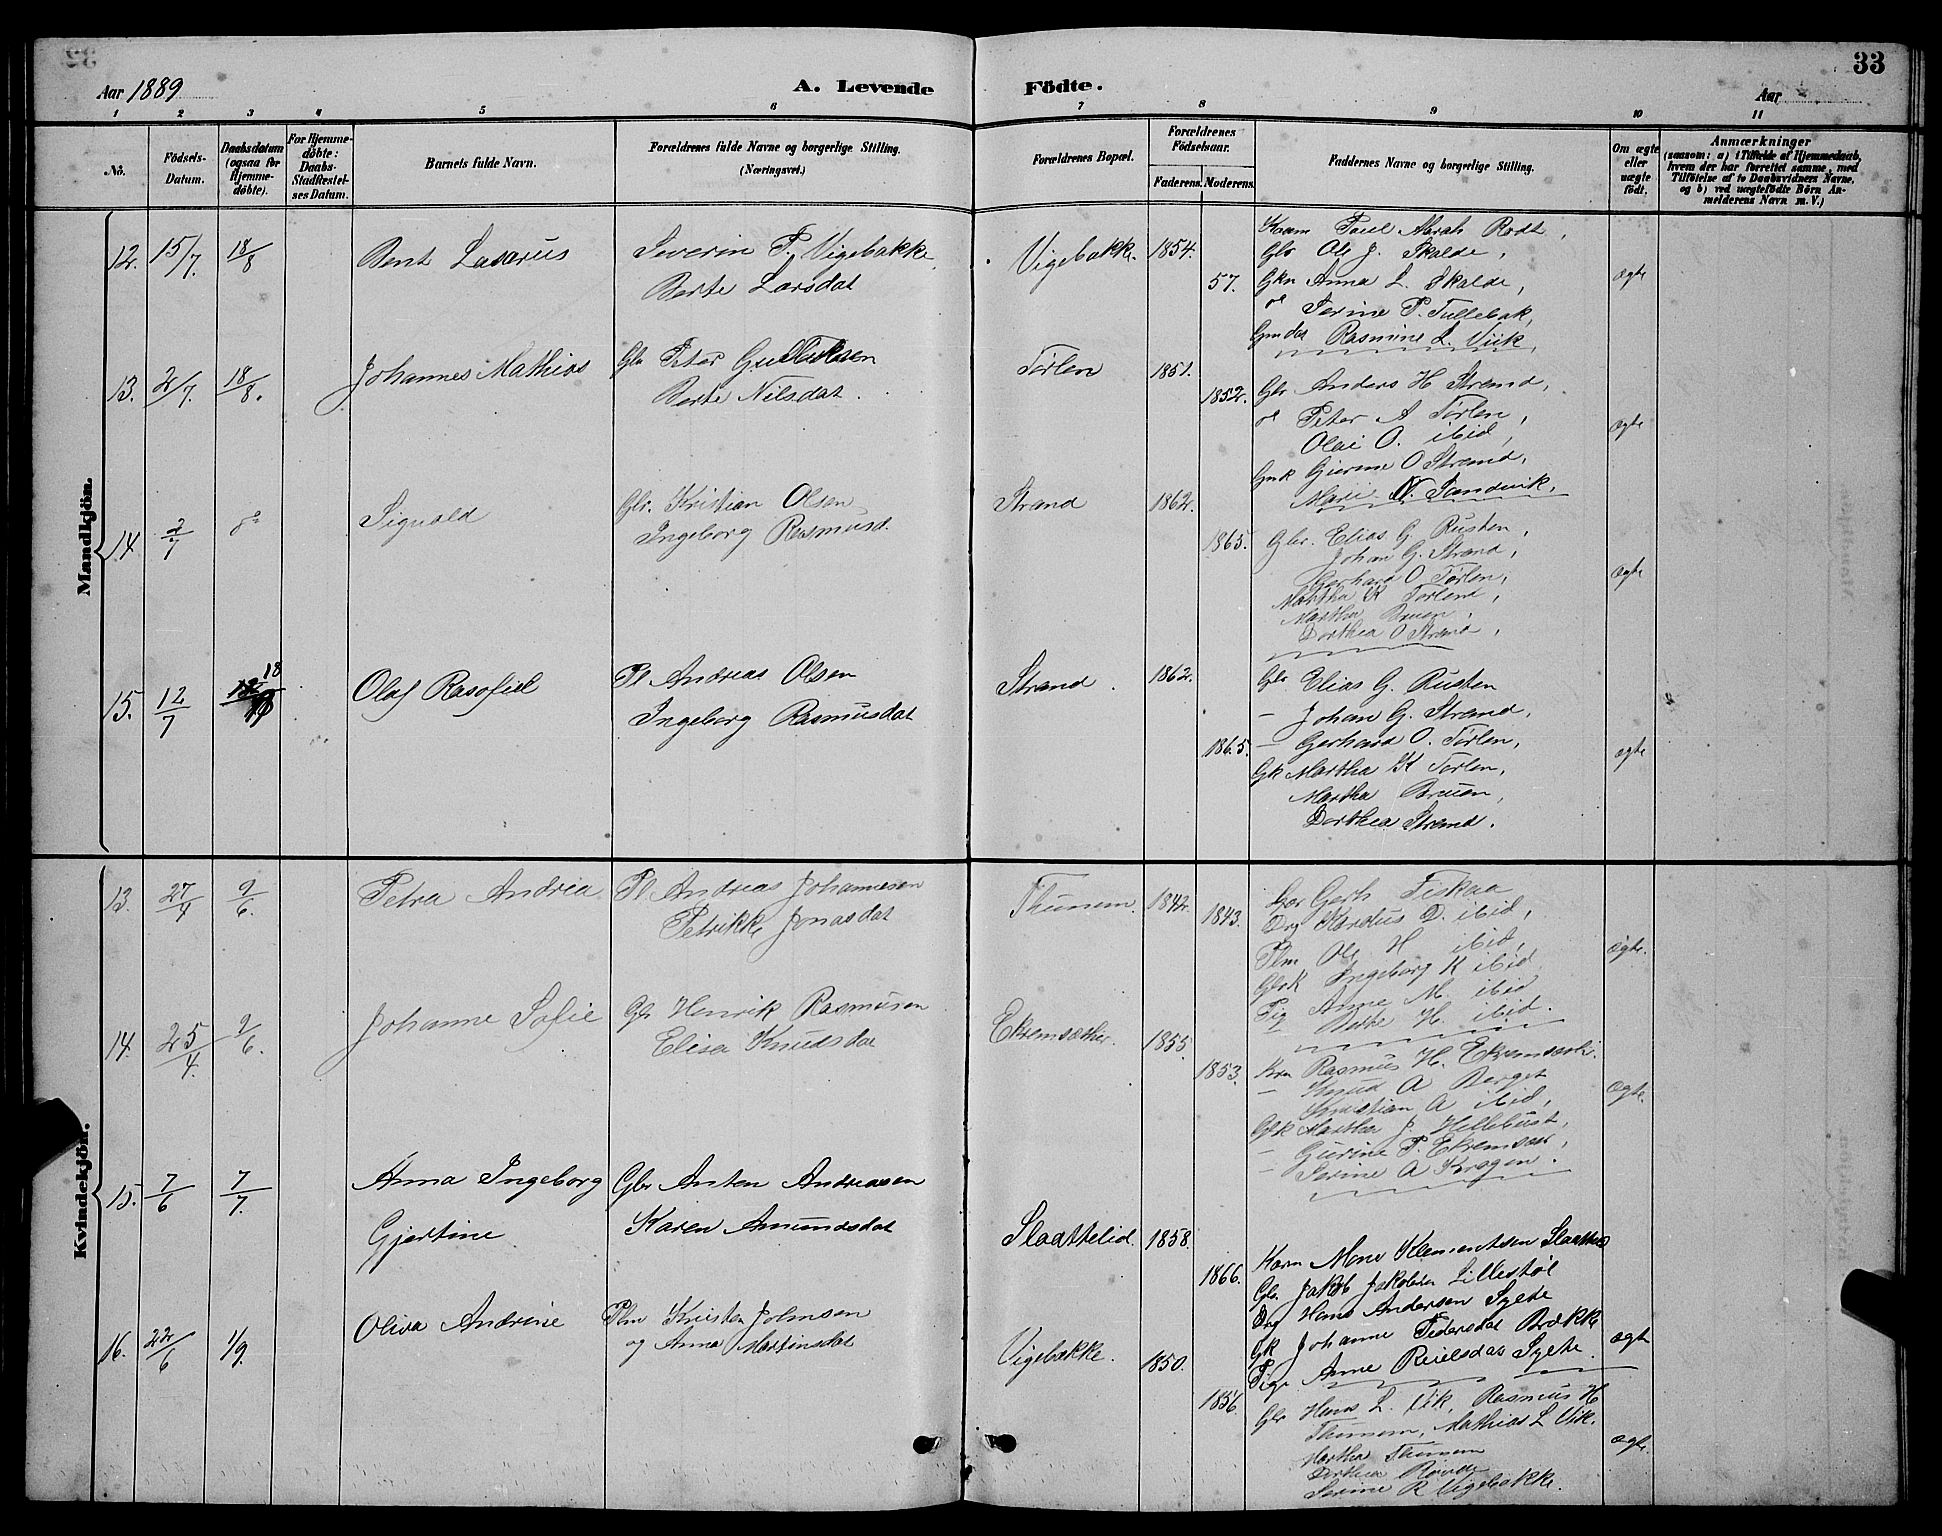 33
Aar 1889
A. Levende Födte.
Aar
1 2 3 4 5 6 7 8 9 10 11
No.
Födsels-Datum.
Daabsdatum (ogsaa for Hjemme-döbte).
For Hjemme-döbte: Daabs-Stadfæstel-ses Datum.
Barnets fulde Navn.
Forældrenes fulde Navne og borgerlige Stilling.
(Næringsvei.)
Forældrenes Bopæl.
Forældrenes Födselsaar.
Faderens.
Moderens.
Faddernes Navne og borgerlige Stilling.
Om ægte eller uægte födt.
Anmærkninger
(saasom: a) i Tilfælde af Hjemmedaab, hvem der har forrettet samme, med Tilföielse af to Daabsvidners Navne, og b) ved uægtefödte Börn An-melderens Navn m. V.)
Mandkjön.
12. 15/7. 18/8
Bent Lasarus
Severin P. Vigebakke
Berte Larsdat
Vigebakke. 1854.
57.
Paul Rodt,
Gbr Ole J. Skalde,
Gkn Anna L. Skalde,
Serine P. Tullebak,
Rasmine L. Viik,
ægte
13. 2/7. 18/8.
Johannes Mathias
Gbr Peter
Berte Nilsdat.
Torlen 1851.
1852.
Gbr Anders H Strand,
Peter A Torlen,
Olai O. ibid,
O Strand,
Marie N. Sandvik,
ægte
14. 2/7 do
Sigvald
Gbr. Kristian Olsen
Ingeborg Rasmusd.
Strand 1862.
1865.
Gbr. Elias G. Rusten,
Johan G. Strand,
Gerhard O Torlen,
Martha K Torlen,
Martha Bruen,
Dorthea O Strand,
ægte
15. 12/7 18
Olaf
Pl Andreas Olsen
Ingeborg Rasmusdat
Strand. 1862.
1865.
Gbr Elias G. Rusten
- Johan G. Strand,
- Gerhard O. Torlen,
Gk Martha K Torlen,
Martha Bruen,
Dorthea Strand.
ægte
Kvindekjön.
13. 27/4 9/6.
Petra Andrea
Pl Andreas Johannesen
Petrikke Jonasdat
Thunem. 1842.
1843.
Gerh Fiskaa
D. ibid,
Plm Ole H ibid,
Gbk Ingeborg K ibid
Pig Anne M. ibid
Berte H. ibid.
ægte.
14. 25/4. 9/6.
Johanne Sofie
Gbr Henrik Rasmusen
Elisa Knudsdat
Ekremsæther. 1855.
1853.
Rasmus H.
- Knud A Berget
Kristian A ibid,
Gbk Marthe J. Hellebust,
- Gurine P.
- Serine A Kragen.
ægte.
15. 7/6 7/7.
Anna Ingeborg
Gjertine
Gbr Anten Andreasen
Karen Amundsdat
Slaattelid. 1858.
1866.
Mons Klementsen
Gbr Jakob Jakobsen Lillestøl
Hans Andersen Sylte
Gk Johanne Pedersdat Brekke
Pige Anne Reielsdat Sylte
ægte
16. 22/6 1/9.
Oliva Andrine
Plm Kristen Johnsen
og Anna Martinsdat
Vigebakke. 1850.
1856.
Gbr Hans L. Vik, Rasmus H
Thunem, Mathias L Vik,
Martha Thunem
Dorthea
Serine R Vigebakke.
ægte.